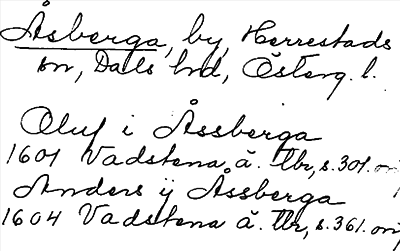 Åsberga, by, Herrestads
sn, Dals hd, Österg. l.
Oluf i Åssberga
1601 Vadstena ä. tlbr, s. 301. ori
Anders ÿ Åssberga
1604 Vadstena ä. tlbr, s. 361. ori